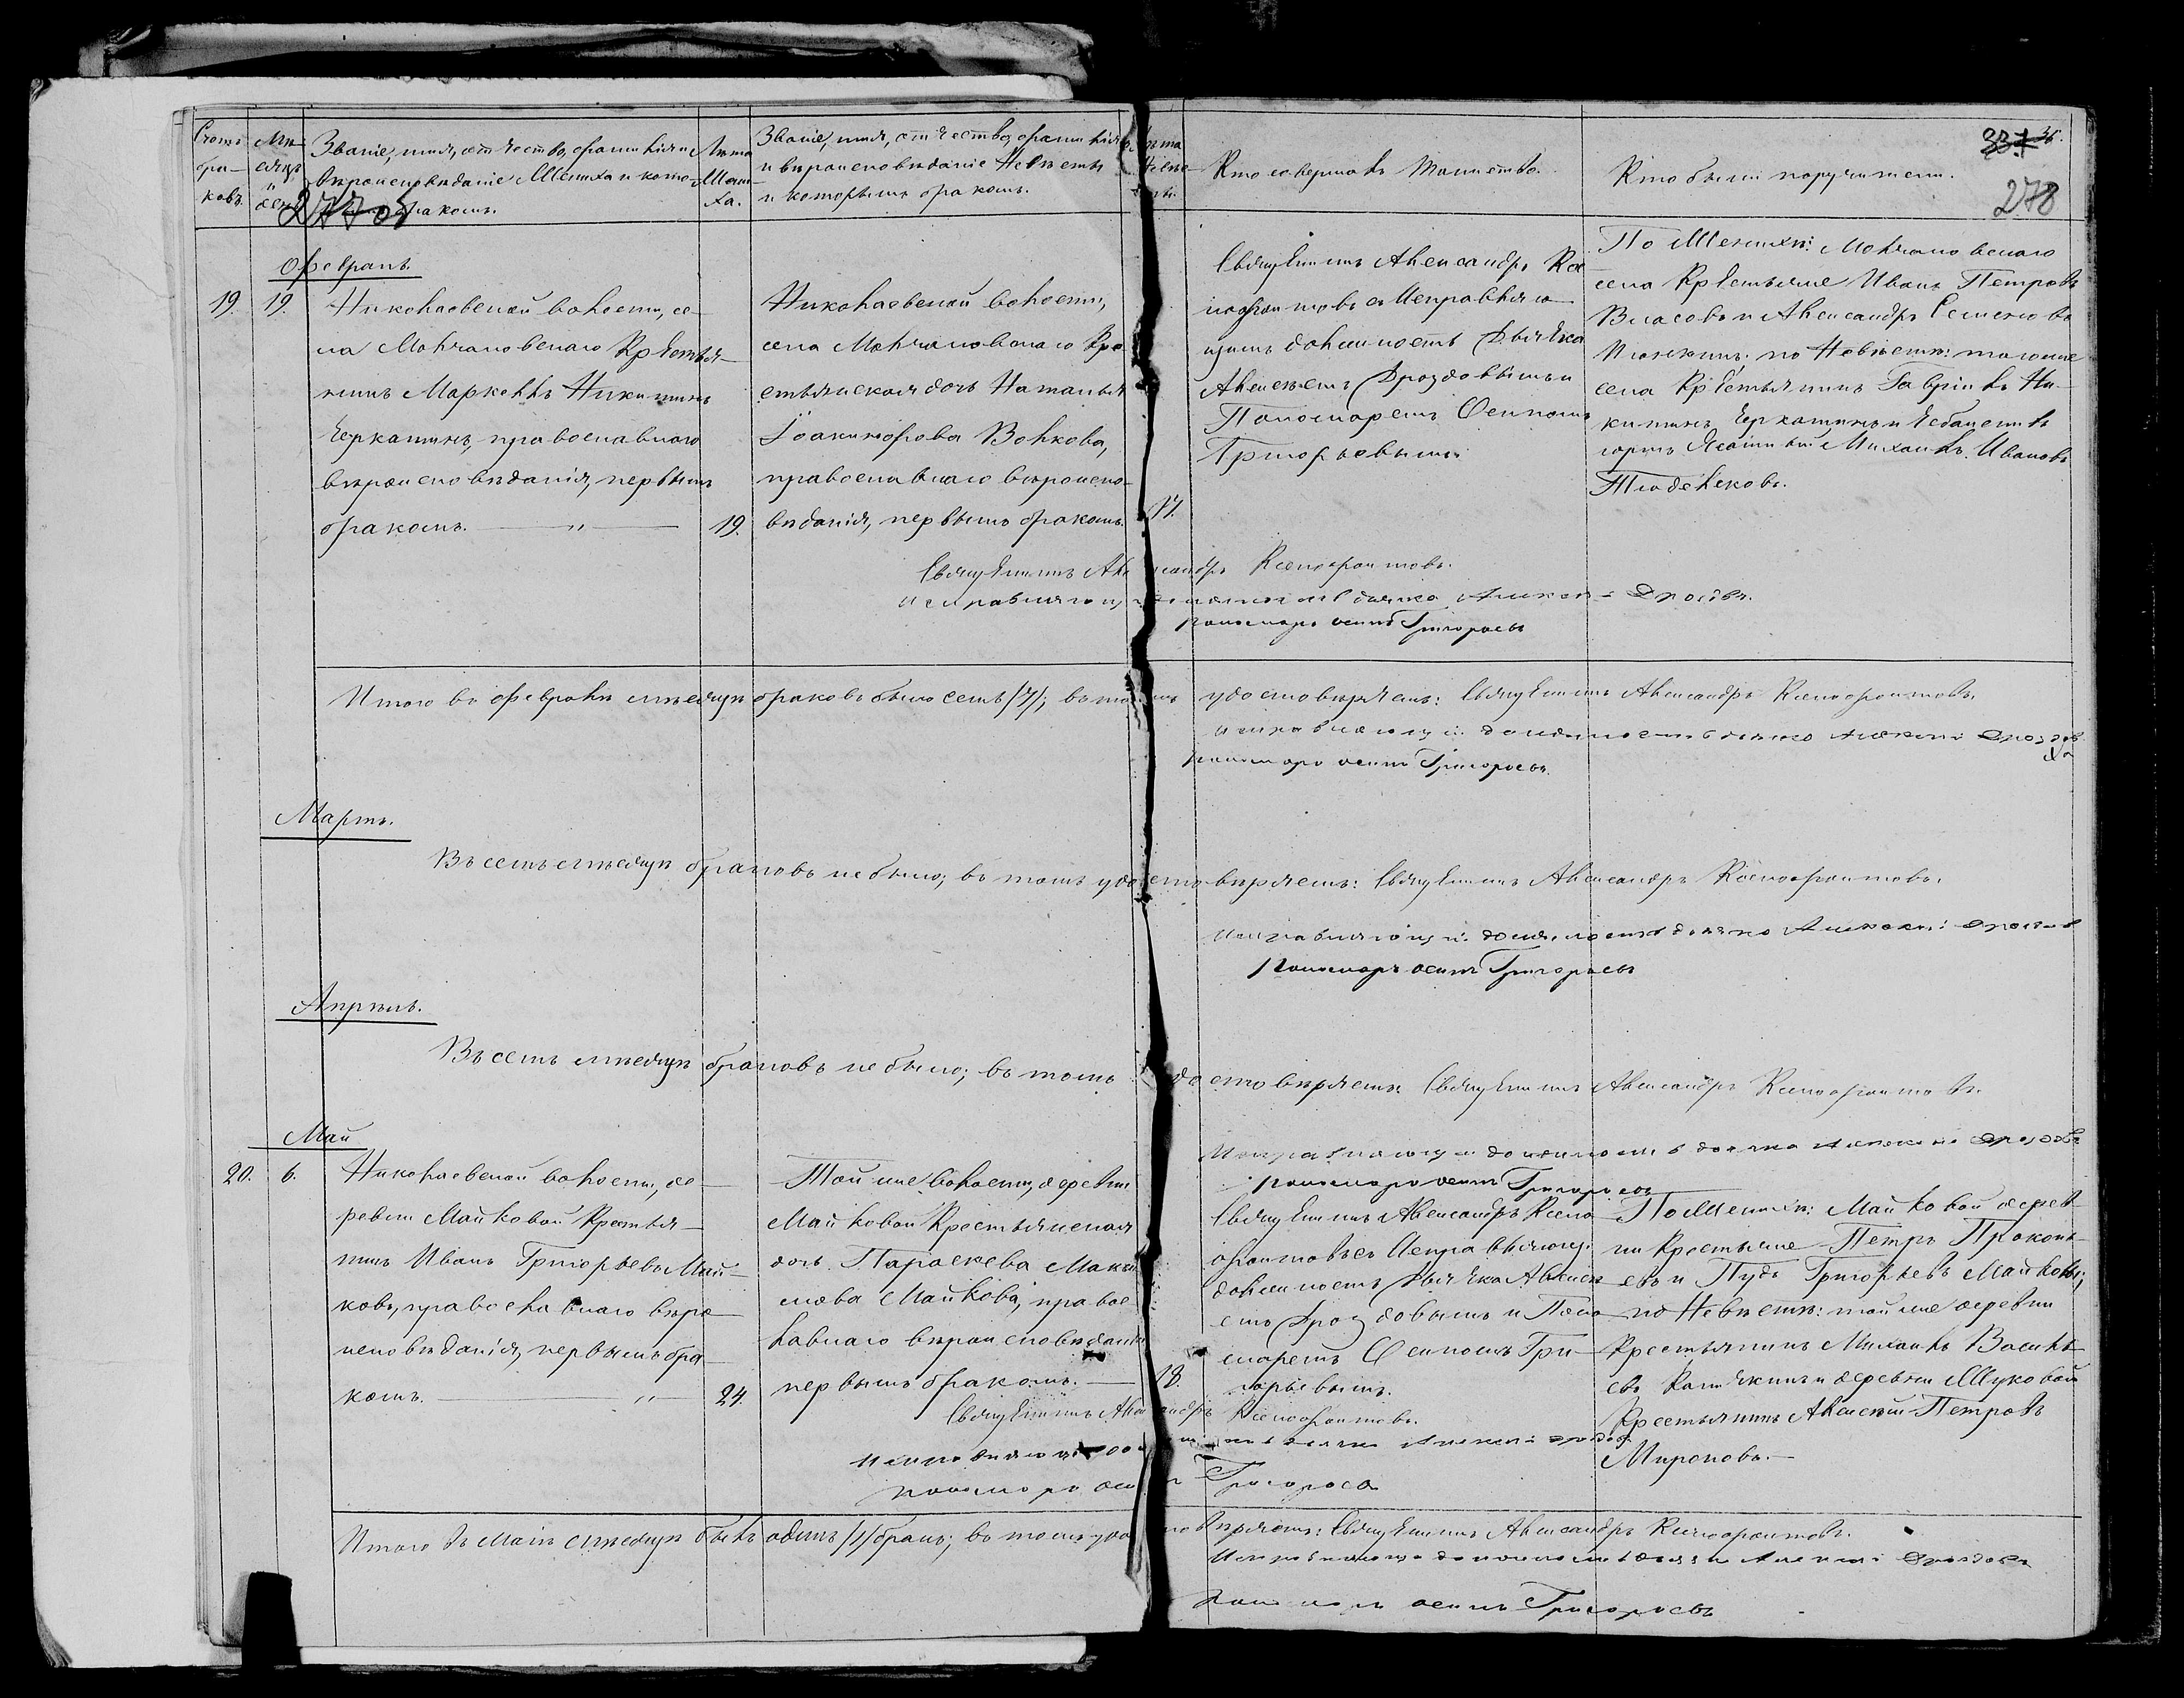 Счетъ бра-ковъ.
Мѣ-сяцъ и день
Званіе, имя, отчество, фамилія и
вѣроисповѣданіе Жениха и кото-
бракомъ.
Лѣта
Жени-
ха.
Званіе, имя, отчество, фамилія
и вѣроисповѣданіе Невѣсты
и которымъ бракомъ.
Лѣта
Невѣс-
ты.
Кто совершалъ Таинство.
Кто были поручители.
277об
278
Февраль.
19.
19.
Николаевской волости, се-
ла Молчановскаго Крестья-
нинъ Маркеллъ Никитинъ
Черкатинъ, православнаго
вѣроисповѣданія, первымъ
бракомъ. — " —
19.
Николаевской волости,
села Молчановскаго Кре-
стьянская дочь Наталья
Іоакимофова Волкова,
православнаго вѣроиспо-
вѣданія, первымъ бракомъ.
17.
Священникъ Александръ Ксе-
нофонтовъ съ Исправляю-
щимъ должность Дьячка
Алексѣемъ Дроздовымъ и
Пономаремъ Осипомъ
Григорьевымъ.
По Женихѣ: Молчановскаго
села Крестьяне Иванъ Петровъ
Власовъ и Александръ Семеновъ
по Невѣстѣ: тогоже
села Крестьянинъ Гавріилъ Ни-
китинъ Черкатинъ и
Михаилъ Ивановъ
Священникъ Александръ Ксенофонтовъ.
Исправляющій должность дьячка Алексей Дроздовъ.
Пономарь осипъ Григорьевъ
Итого въ февралѣ мѣсяцѣ браковъ было семь /7/; въ томъ удостовѣряемъ: Священникъ Александръ Ксенофонтовъ.
исправляющій должность дьячка Алексей Дроздовъ
пономарь осипъ Григорьевъ.
Мартъ.
Въ семъ мѣсяцѣ браковъ не было; въ томъ удостовѣряемъ: Священникъ Александръ Ксенофонтовъ.
исправляющій должность дьячка Алексей Дроздовъ
пономарь осипъ Григорьевъ
Апрѣль.
Въ семъ мѣсяцѣ браковъ не было; въ томъ удостовѣряемъ: Священникъ Александръ Ксенофонтовъ.
Исправляющій должность дьячка Алексей Дроздовъ
пономарь осипъ Григорьевъ
Май
20.
6.
Николаевской волости, де-
ревни Майковой Крестья-
нинъ Иванъ Григорьевъ Май-
ковъ, православнаго вѣро-
исповѣданія, первымъ бра-
комъ. — " —
24.
Той же волости, деревни
Майковой Крестьянская
дочь Параскева Макси
мова Майкова, право
славнаго вѣроисповѣданія
первымъ бракомъ. —
18.
Священникъ Александръ Ксено-
фонтовъ съ Исправляющ.
должность Дьячка Алексѣ-
емъ Дроздовымъ и Поно-
маремъ Осипомъ Гри-
горьевымъ.
По Женихѣ: Майковой дерев-
ни Крестьяне Петръ Прокопь-
евъ и Пудъ Григорьевъ Майковы;
по Невѣстѣ: той же деревни
Крестьянинъ Михаилъ Василь-
евъ и деревни Жуковой
Крестьянинъ Алексѣй Петровъ
Мироновъ. —
Священникъ Александръ Ксенофонтовъ.
исправляющій должность дьячка Алексей Дроздовъ
пономарь осипъ Григорьевъ
Итого въ Маѣ мѣсяцѣ былъ одинъ /1/ бракъ; въ томъ удостовѣряемъ: Священникъ Александръ Ксенофонтовъ.
Исправляющій должность дьячка Алексей Дроздовъ
пономарь осипъ Григорьевъ